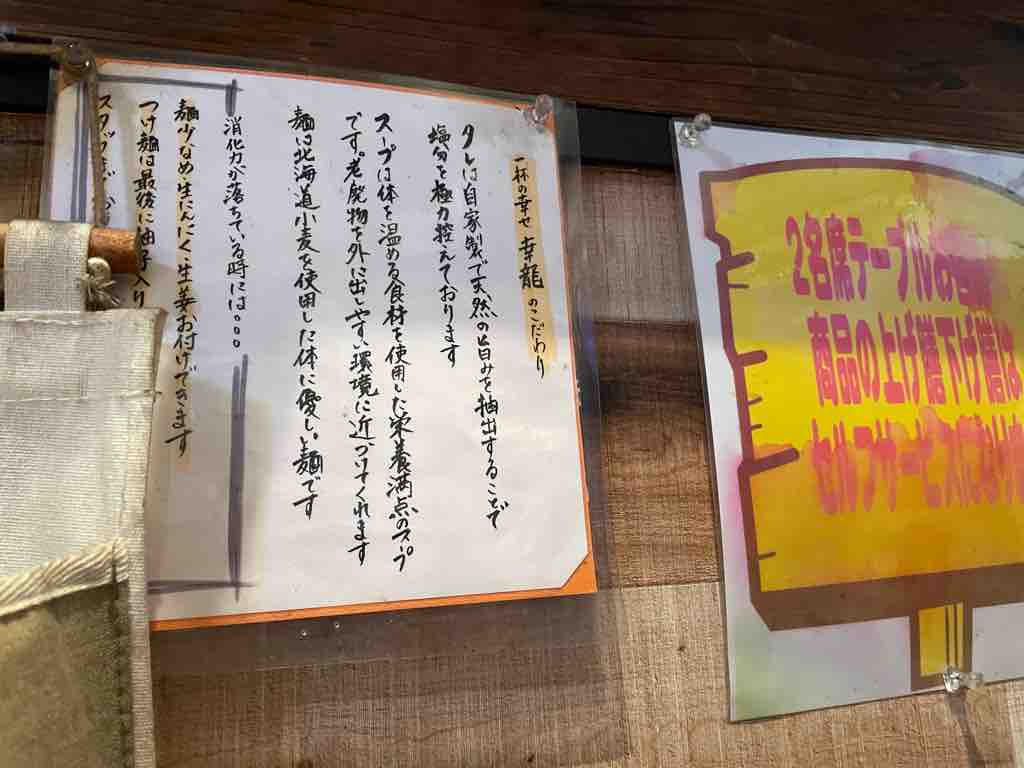 一杯の幸せ 幸龍 のこだわり
タレは自家製で天然の旨みを抽出することで
塩分を極力控えております
スープは体を温める食材を使用した栄養満点のスープ
です。老廃物を外に出しやすい環境に近づけてくれます
麺は北海道小麦を使用した体に優しい麺です
消化力が落ちている時には。。。
麺少なめ・生にんにく・生姜お付けできます
つけ麺は最後に柚子入り
スタッフまで
2名席テーブルの
商品の上げ膳下げ膳は
セルフサービスになり